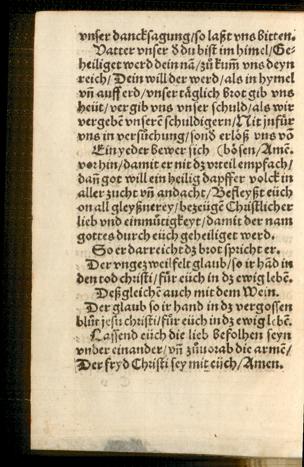 vnser dancksagung/so laßt vns bitten.
Vatter vnser d̕ du bist im himel/Ge-
heiliget werd dein nã/zů kum̃ vns deyn
reich/Dein will der werd/als in hymel
vñ auff erd/vnser täglich brot gib vns
heüt/vergib vns vnser schuld/als wir
vergebẽ vnserẽ schuldigern/Nit infür
vns in versůchung/sond̕ erlöß vns võ
Ein yeder bewer sich bösen/Amẽ.
vorhin/damit er nit dz vrteil empfach/
dañ got will ein heilig dapffer volck in
aller zucht vñ andacht/Befleyßt eüch
on all gleyßnerey/bezeügẽ Christlicher
lieb vnd einmütigkeyt/damit der nam
gottes durch eüch geheiliget werd.
So er darreicht dz brot spricht er.
Der vngezweifelt glaub/so ir hãd in
den tod christi/für eüch in dz ewig lebẽ.
Deßgleichẽ auch mit dem Wein.
Der glaub so ir hand in dz vergossen
blůt jesu christi/für eüch in dz ewig lebẽ.
Lassend eüch die lieb befolhen seyn
vnder einander/vñ zůuorab die armẽ/
Der fryd Christi sey mit eüch/Amen.